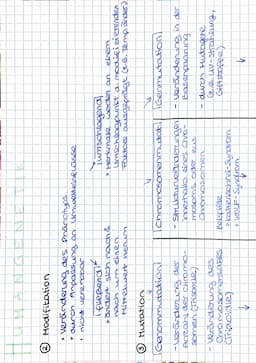 HUMANGENETIK
② Modifikation
• Veränderung des Phänotyps
• durch Anpassung an Umwelteinflüsse
• nicht vererbbar
fließend
• ändert sich nach &
nach um einen
Mittelwert herum
umschlagend
• Merkmale werden an einem
Umschlagpunkt
Farben ausgeprägt (z.B. Temp.änder.)
③ Mutation
Genommutation
- Veränderung der
Anzahl der Chromo-
somen (Trisomie)
- Veränderung des
Chromosomensatzes
(Triploidie)
Chromosomenmutat.
- Strukturveränderungen
innerhalb eines Chro-
mosoms oder
Chromosomen
Beispiele
• Katzenschrei-Syndrom
• Wolf-Syndrom
Genmutation
- Veränderung in der
Basenpaarung
- durch Mutagene
(z.B. UV-Strahlung,
Giftstoffe)